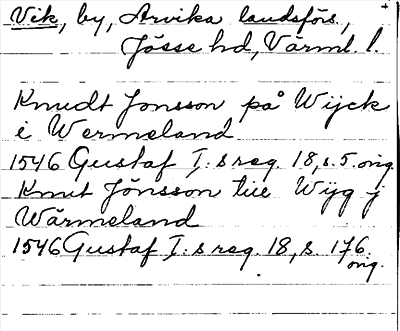 Vik, by, Arvika landsförs.,
Jösse hd, Värml. l.
Knudt Jonsson på Wijck
i Wermeland
1546 Gustaf I:s reg. 18, s. 5. orig.
Knut Jönsson tiie Wijg j
Wärmeland
1546 Gustaf I:s reg. 18, s. 176.
orig.